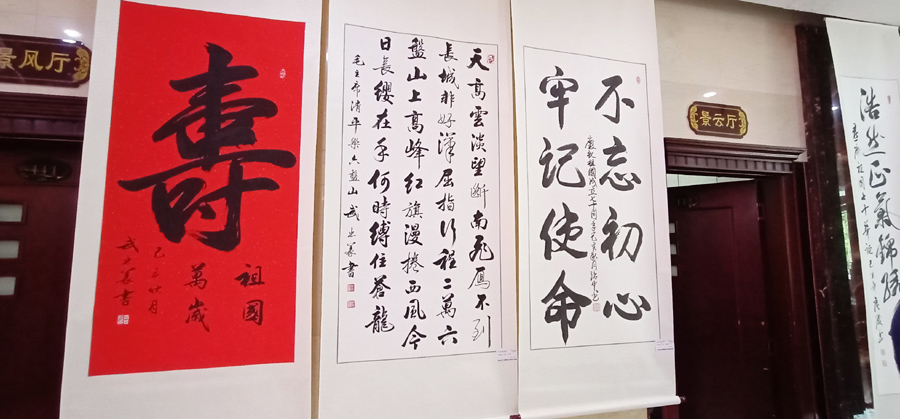 景风厅
壽
祖國
萬歲
天高雲淡望斷南飛雁不到
長城非好漢屈指行程二萬六
盤山上高峰紅旗漫捲西風今
日長纓在手何時縛住蒼龍
毛主席清平樂六盤山
不忘初心
牢记使命
慶祝祖國成立七十周年
景云厅
浩然正氣錦繡